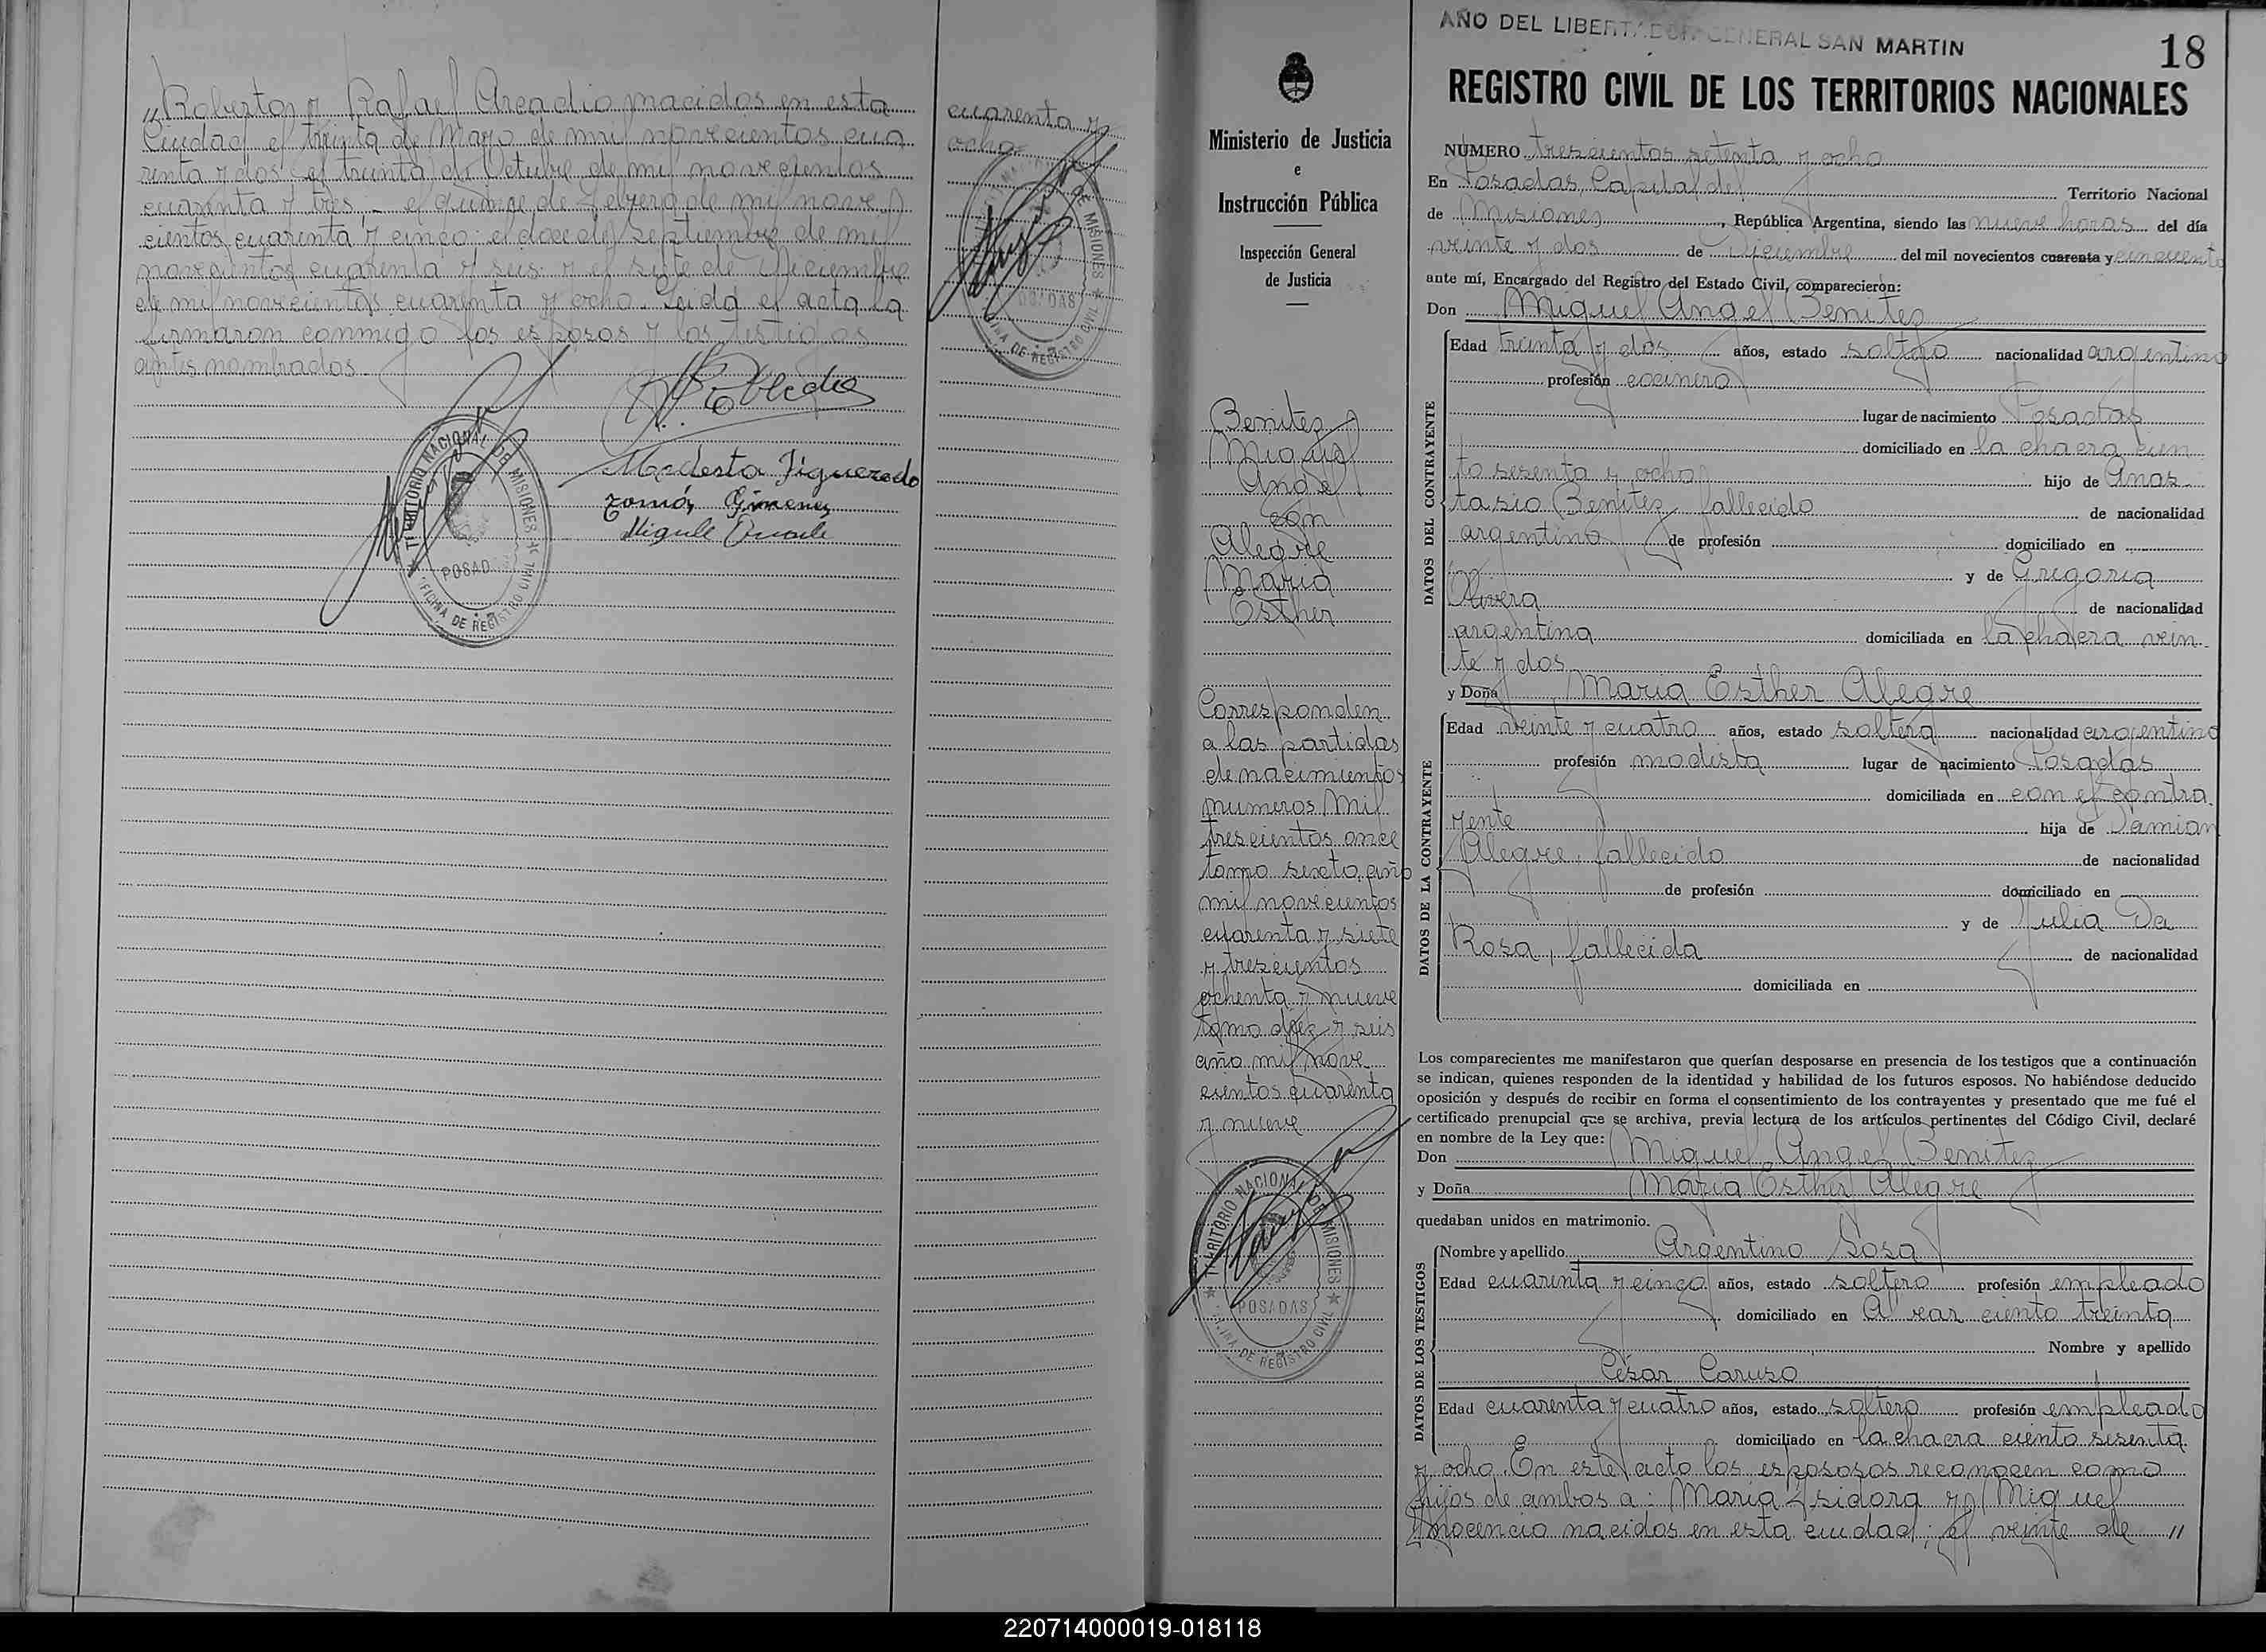 "Roberto y Rafael Arcadio nacidos en esta
Ciudad el treinta de Mayo de mil novecientos cua
renta y dos: el treinta de Octubre de mil novecientos
cuarenta y tres; - el quince de Febrero de mil nove
cientos cuarenta y cinco; el doce de Septiembre de mil
novecientos cuarenta y seis y el siete de Diciembre
de mil novecientos cuarenta y ocho. Leida el acta la
firmaron conmigo los esposos y los testigos
antes nombrados.
Modesta Figueredo
Gimenez
TERRITORIO NACIONAL DE MISIONES
POSADAS
OFICINA DE REGISTRO CIVIL
cuarenta y
ocho
DE MISIONES
POSADAS
OFICINA DE REGISTRO CIVIL
Ministerio de Justicia
e
Instrucción Pública
Inspección General
de Justicia
Benitez
Miguel
Angel
con
Alegre
Maria
Esther
Corresponden
a las partidas
de nacimientos
numeros mil
trescientos once
tomo sexto, año
mil novecientos
cuarenta y siete
y trescientos
ochenta y nueve
tomo diez y seis
año mil nove
cientos cuarenta
y nueve
TERRITORIO NACIONAL DE MISIONES
POSADAS
OFICINA DE REGISTRO CIVIL
AÑO DEL LIBERTADOR GENERAL SAN MARTIN
18
REGISTRO CIVIL DE LOS TERRITORIOS NACIONALES
NÚMERO trescientos setenta y ocho
En Posadas, Capital del Territorio Nacional
de Misiones, República Argentina, siendo las nueve horas del día
veinte y dos de Diciembre del mil novecientos cuarenta y cincuenta
ante mí, Encargado del Registro del Estado Civil, comparecieron:
Don Miguel Angel Benitez
DATOS DEL CONTRAYENTE
Edad treinta y dos años, estado soltero nacionalidad argentino
profesión cocinero
lugar de nacimiento Posadas
domiciliado en la chacra cien
to sesenta y ocho hijo de Anas-
tasio Benitez, fallecido de nacionalidad
argentino de profesión domiciliado en
y de Gregoria
Olivera de nacionalidad
argentina domiciliada en la chacra vein-
te y dos
y Doña Maria Esther Alegre
DATOS DE LA CONTRAYENTE
Edad veinte y cuatro años, estado soltera nacionalidad argentina
profesión modista lugar de nacimiento Posadas
domiciliada en con el contra-
yente hija de Damian
Alegre, fallecido de nacionalidad
de profesión domiciliado en
y de Julia Da
Rosa, fallecida de nacionalidad
domiciliada en
Los comparecientes me manifestaron que querían desposarse en presencia de los testigos que a continuación
se indican, quienes responden de la identidad y habilidad de los futuros esposos. No habiéndose deducido
oposición y después de recibir en forma el consentimiento de los contrayentes y presentado que me fué el
certificado prenupcial que se archiva, previa lectura de los artículos pertinentes del Código Civil, declaré
en nombre de la Ley que:
Don Miguel Angel Benitez
y Doña Maria Esther Alegre
quedaban unidos en matrimonio.
DATOS DE LOS TESTIGOS
Nombre y apellido Argentino Sosa
Edad cuarenta y cinco años, estado soltero profesión empleado
domiciliado en Alvear ciento treinta
Nombre y apellido
César Caruso
Edad cuarenta y cuatro años, estado soltero profesión empleado
domiciliado en la chacra ciento sesenta
y ocho. En este acto los espososos reconocen como
hijos de ambos a: Maria Isidora y Miguel
Inocencio nacidos en esta ciudad; el veinte de "
220714000019-018118